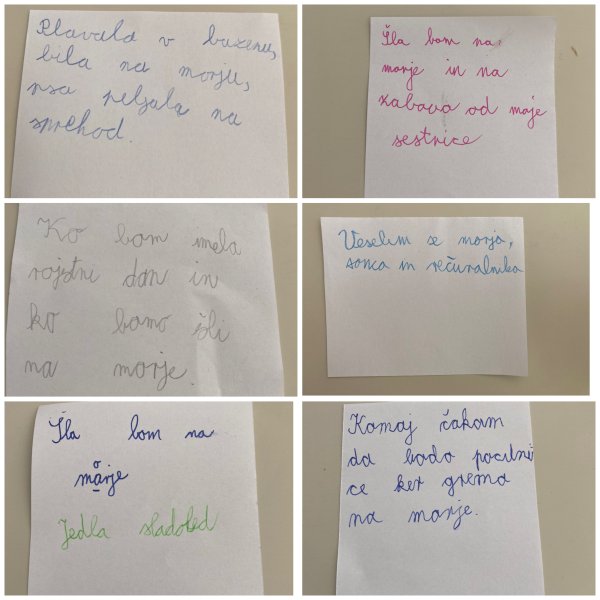 Plavala v bazenu,
bila na morju,
psa peljala na
sprehod.
Šla bom na
morje in na
zabavo od moje
sestrice
Ko bom imela
rojstni dan in
ko bomo šli
na morje.
Veselim se morja,
sonca in rečuralnika
Šla bom na
morje
Jedla sladoled
Komaj čakam
da bodo počitni
ce ker grema
na morje.